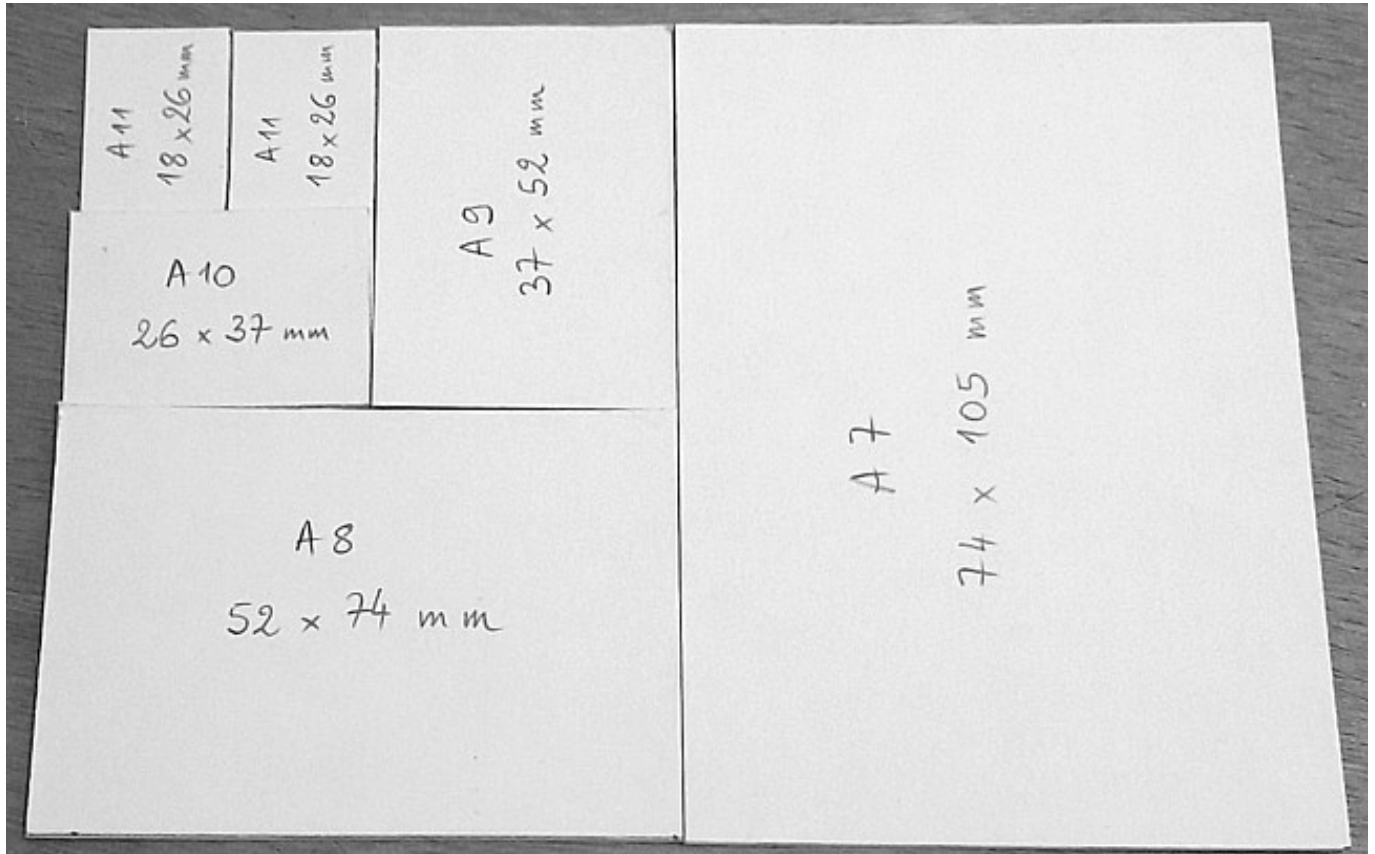 A 11
18 x 26 mm
A 11
18 x 26 mm
A 9
37 x 52 mm
A 10
26 x 37 mm
A 8
52 x 74 mm
A 7
74 x 105 mm